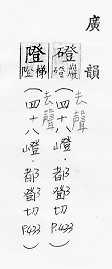 廣韻
磴 巖磴 去聲（四十八嶝．都鄧切 P.433）
隥 梯隥 去聲（四十八嶝．都鄧切 P.433）